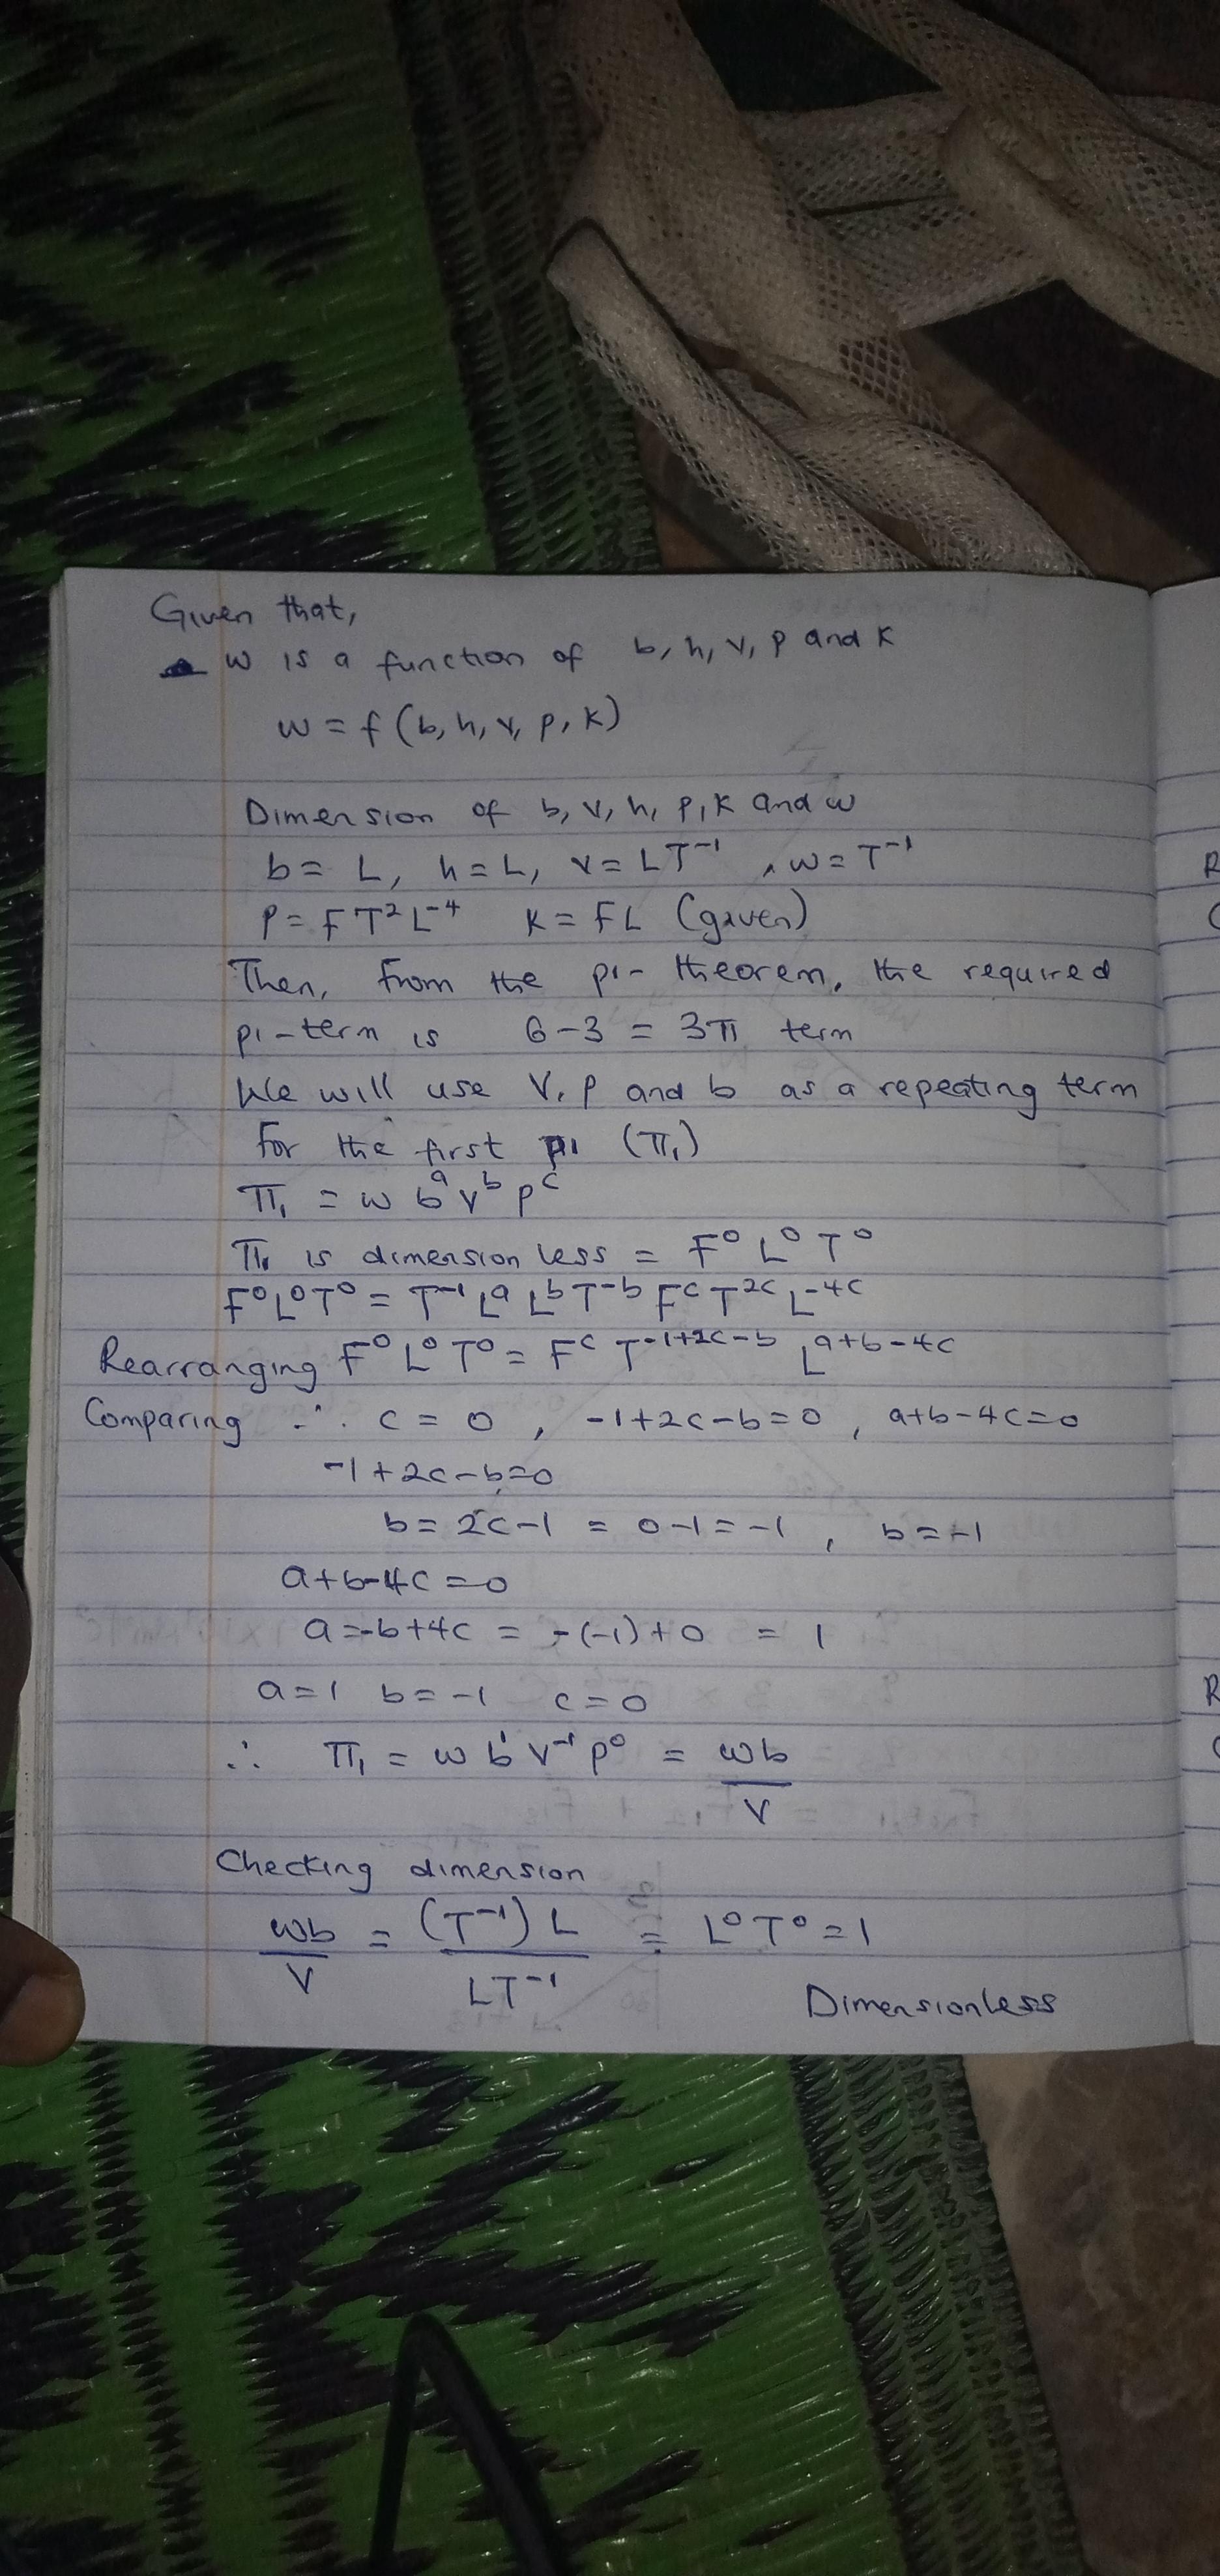 Given that,
w is a function of b, h, v, p and k
w = f (b, h, v, p, k)
Dimension of b, v, h, p, k and w
b = L, h = L, v = LT⁻¹, w = T⁻¹
p = FT²L⁻⁴ k = FL (given)
Then, from the pi- theorem, the required
pi-term is 6-3 = 3π term
We will use V, p and b as a repeating term
For the first pi (π₁)
π₁ = w bᵃ vᵇ pᶜ
π₁ is dimensionless = F⁰ L⁰ T⁰
F⁰L⁰T⁰ = T⁻¹ Lᵃ Lᵇ T⁻ᵇ Fᶜ T²ᶜ L⁻⁴ᶜ
Rearranging F⁰ L⁰ T⁰ = Fᶜ T⁻¹⁺²ᶜ⁻ᵇ Lᵃ⁺ᵇ⁻⁴ᶜ
Comparing ∴ c = 0, -1+2c-b=0, a+b-4c=0
-1+2c-b=0
b = 2c-1 = 0-1 = -1, b = -1
a+b-4c=0
a=-b+4c = -(-1)+0 = 1
a=1 b=-1 c=0
∴ π₁ = w b¹ v⁻¹ p⁰ = wb
V
Checking dimension
wb = (T⁻¹) L = L⁰T⁰ = 1
V LT⁻¹
Dimensionless